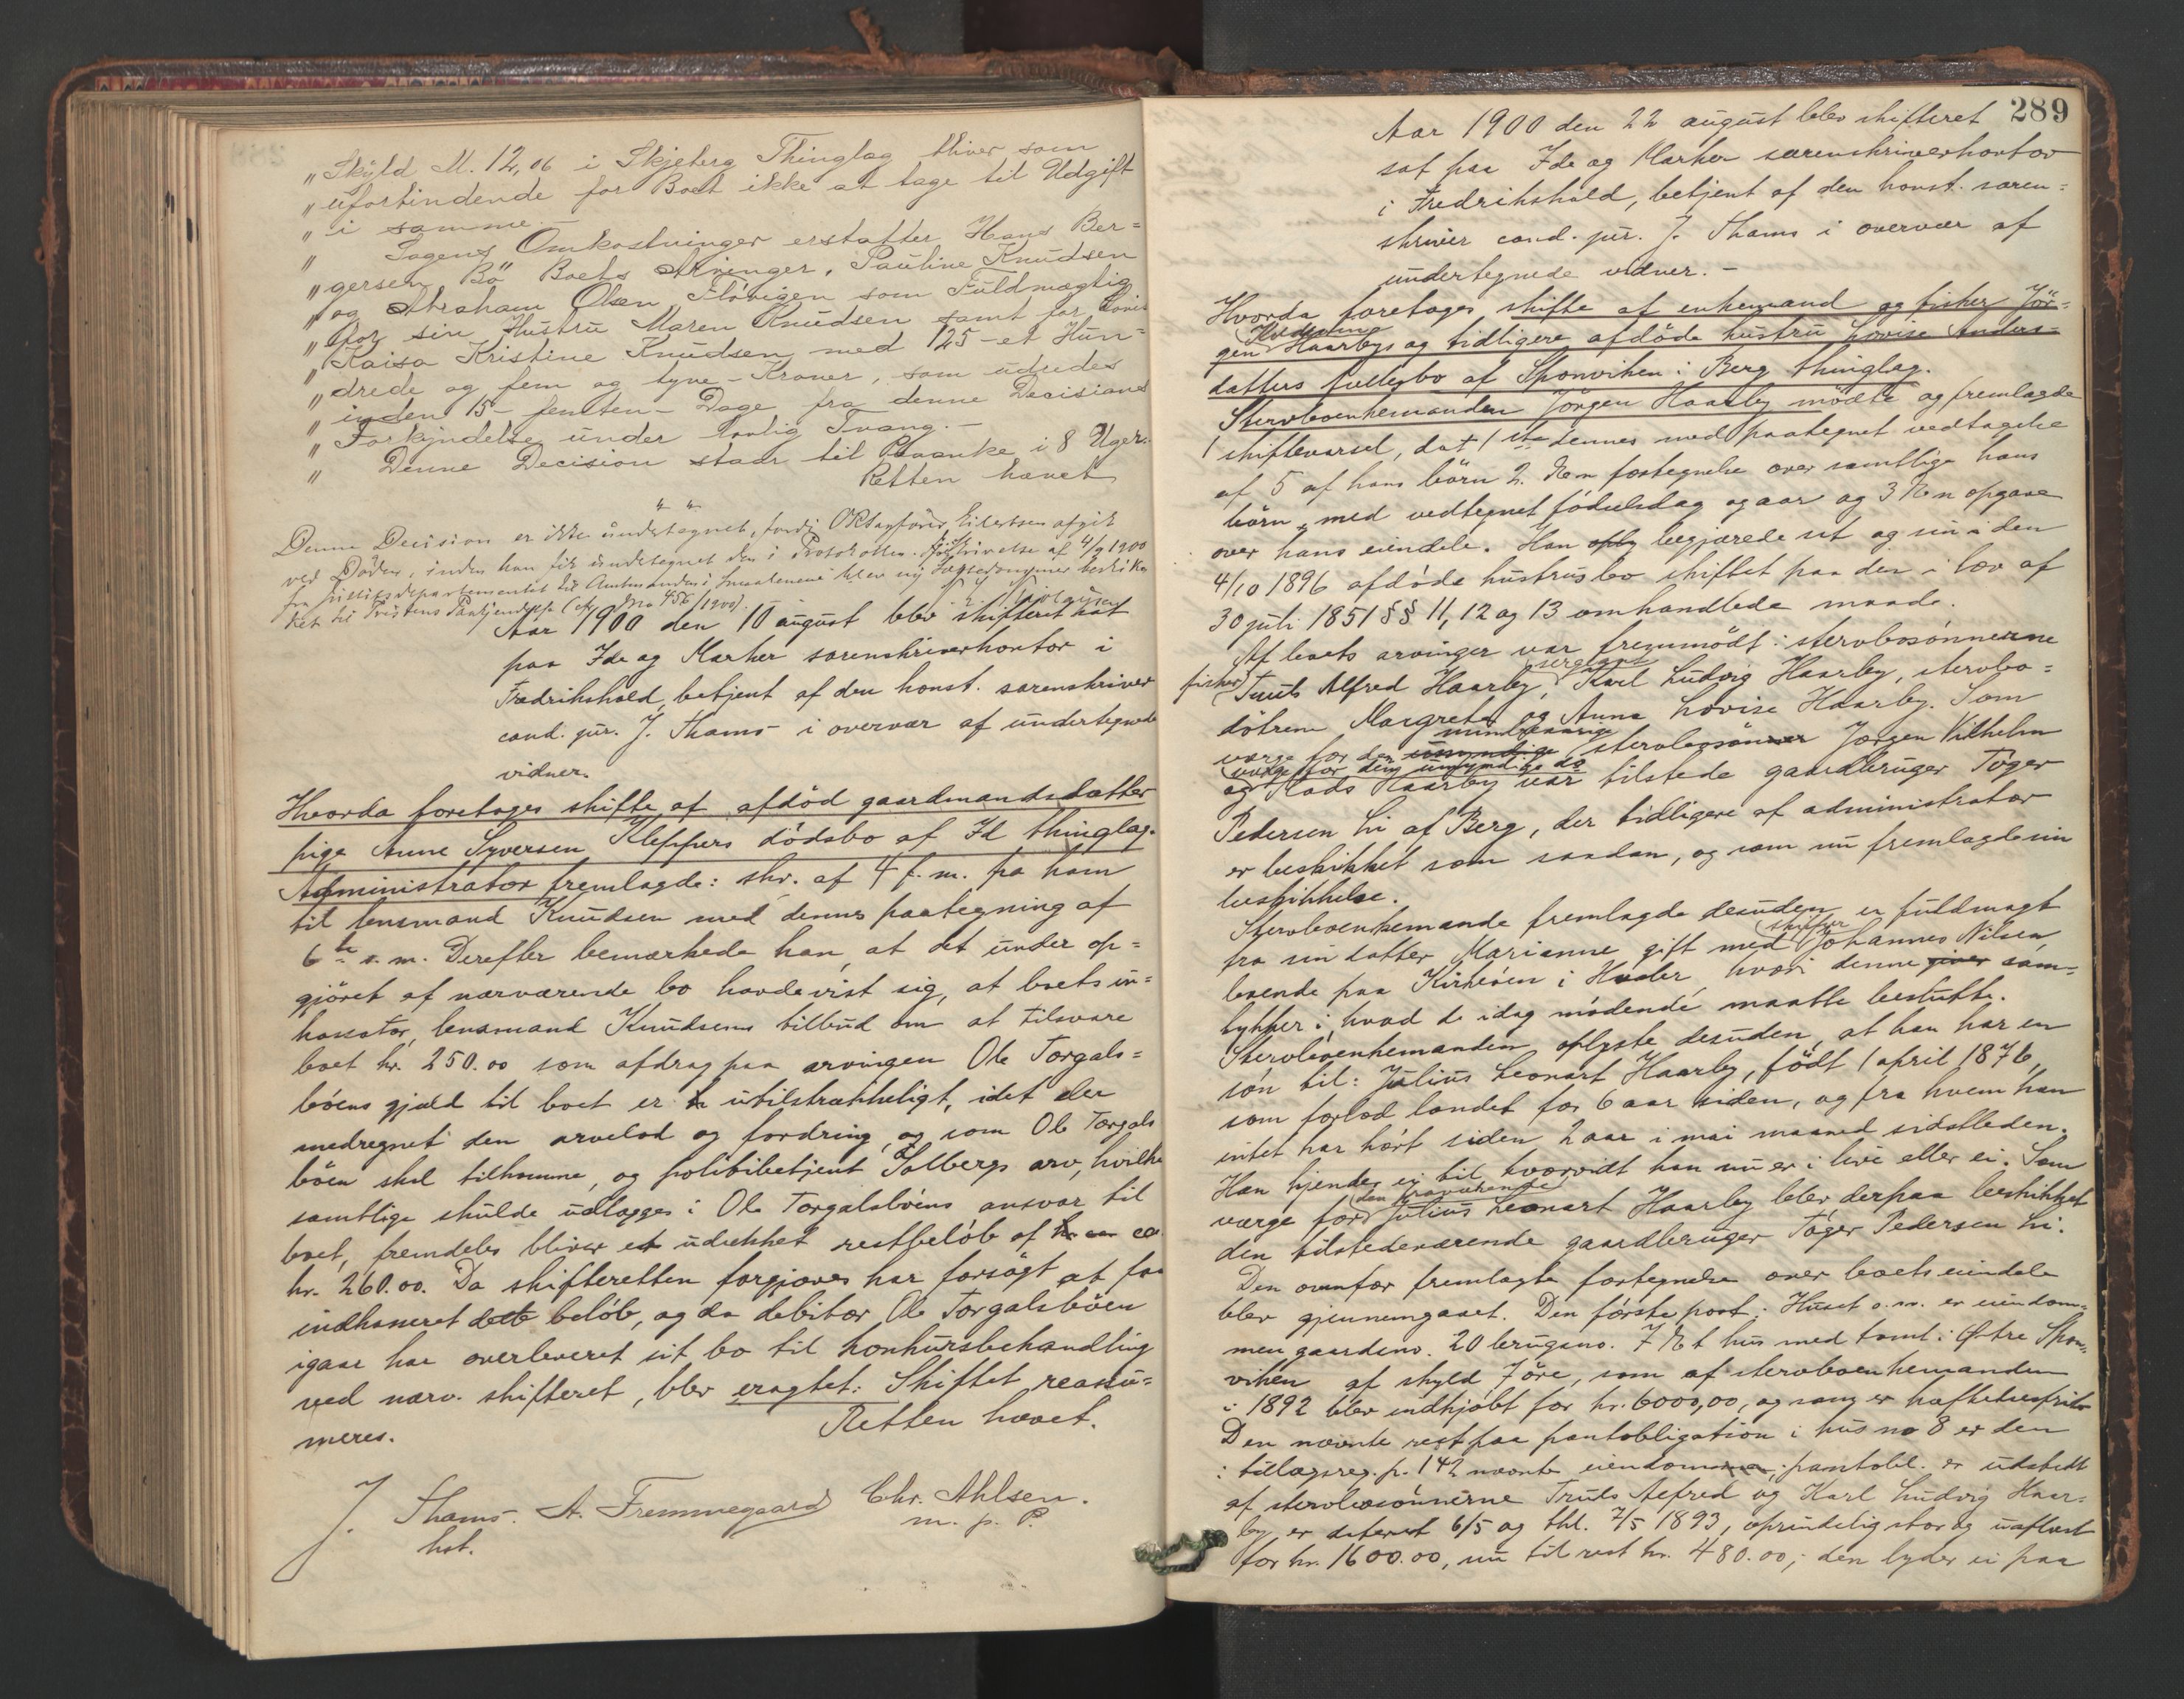 „Skyld M. 12,06 i Skjeberg Thinglag bliver som
„uforbindende for Boet ikke at tage til Udgift
„i samme. –
„ Sagens Omkostninger erstatter Hans Ber=
„gersen Bö Boets Arvinger, Pauline Knudsen
„og Abraham Olsen Flövigen som Fuldmægtig
„for sin Hustru Maren Knudsen samt for Lovise
„Kaisa Kristine Knudsen med 125 - et Hun=
„drede og fem og tyve - Kroner, som udredes
„inden 15 - femten - Dage fra denne Decisions
„Forkyndelse under lovlig Tvang. –
„ Denne Decision staar til Paaanke i 8 Uger.
Retten hævet
Denne Decision er ikke undertegnet, fordi Eilertsen afgik
ved Döden, inden han fik undertegnet den i Protokollen. Skrivelse af 4/9 1900
fra Justitsdepartementet til Amtmanden i Smaalenene blev ny
ket til Tristens (cfr. No 456/1900).
Aar 1900 den 10 august blev skifteret sat
paa Ide og Marker sorenskriverkontor i
Fredrikshald, betjent af den konst. sorenskriver
cand. jur. J. Thams i overvær af undertegnede
vidner.
Hvorda foretages skifte af afdöd gaardmandsdatter
pige Anne Syversen Kleppers dödsbo af Id thinglag.
Administrator fremlagde: skr. af 4 f. m. fra ham
til lensmand Knudsen med dennes paategning af
6te s. m. Derefter bemærkede han, at det under op=
gjöret af nærværende bo havde vist sig, at boets in=
kassator, lensmand Knudsens tilbud om at tilsvare
boet kr. 250.00 som afdrag paa arvingen Ole Torgals=
böens gjæld til boet er utilstrækkeligt, idet der
medregnet den arvelod og fordring, og som Ole Torgals
böen skal tilkomme, og politibetjent Solbergs arv, hvilke
samtlige skulde udlægges i Ole Torgalsböens ansvar til
boet, fremdeles bliver et udækket restbelöb af ca.
kr. 260.00. Da skifteretten forgjæves har forsögt at faa
indkasseret dette belöb, og da debitor Ole Torgalsböen
igaar har overleveret sit bo til konkursbehandling
ved nærv. skifteret, blev eragtet: Skiftet reassu=
meres.
Retten hævet.
J. Thams. A. Fremmegaard Chr. Ahlsen.
kst. m. p. P.
289
Aar 1900 den 22 august blev skifteret
sat paa Ide og Marker sorenskriverkontor
i Fredrikshald, betjent af den konst. soren=
skriver cand. jur. J. Thams i overvær af
undertegnede vidner. –
Hvorda foretages skifte af enkemand og fisker Jör=
gen Haarbys og tidligere afdöde hustru Lovise Anders=
datters fællesbo af Sponviken i Berg thinglag.
Stervboenkemanden Jörgen Haarby mödte og fremlagde
1 skiftevarsel, dat 1ste dennes med paategnet vedtagelse
af 5 af hans börn 2. En fortegnelse over samtlige hans
börn, med vedtegnet födselsdag og aar og 3 En opgave
over hans eiendele. Han oply begjærede sit og sin i den
4/10 1896 afdöde hustrus bo skiftet paa den i lov af
30 juli 1851 §§ 11, 12 og 13 omhandlede maade.
Af boets arvinger var fremmödt: stervbosönnerne
fisker Truls Alfred Haarby, sergeant Karl Ludvig Haarby, stervbo=
dötrene Margrete og Anna Lovise Haarby. Som
værge for den umyndige mindreaarige stervbosönner Jörgen Vilhelm
værge for den umyndige do
og Mads Haarby var tilstede gaardbruger Töger
Pedersen Li af Berg, der tidligere af administrator
er beskikket som saadan, og som nu fremlagde sin
beskikkelse.
Stervboenkemande fremlagde desuden en fuldmagt
fra sin datter Marianne gift med skipper Johannes Nilsen
boende paa Kirköen i Hvaler, hvori denne giver sam=
tykker i, hvad de idag mödende maatte beslutte.
Stervboenkemanden oplyste desuden, at han har en
sön til: Julius Leonart Haarby, födt 1 april 1876,
som forlod landet for 6 aar siden, og fra hvem han
intet har hört siden 2 aar i mai maaned sidstleden.
Han kjender ei til, hvorvidt han nu er i live eller ei. Som
værge for den fraværende Julius Leonart Haarby blev derpaa beskikket
den tilstedeværende gaardbruger Töger Pedersen Li.
Den ovenfor fremlagte fortegnelse over boets eiendele
blev gjennemgaaet. Den förste post: Huset o. s. v. er eiendom=
men gaardsno. 20 brugsno. 7 Et hus med tomt i Östre Spon=
viken af skyld 7 öre, som af stervboenkemanden
i 1892 blev indkjöbt for kr. 6000,00, og som er hæftelsesfrit.
Den nævnte rest paa pantobligation i hus no 8 er den
i tillægsreg. p. 142 nævnte eiendom; pantobl. er udstedt
af stervbosönnerne Truls Alfred og Karl Ludvig Haar=
by, er dateret 6/5 og thl. 7/5 1893, oprindelig stor og uaflæst
for kr. 1600.00, nu til rest kr. 480.00; den lyder ei paa